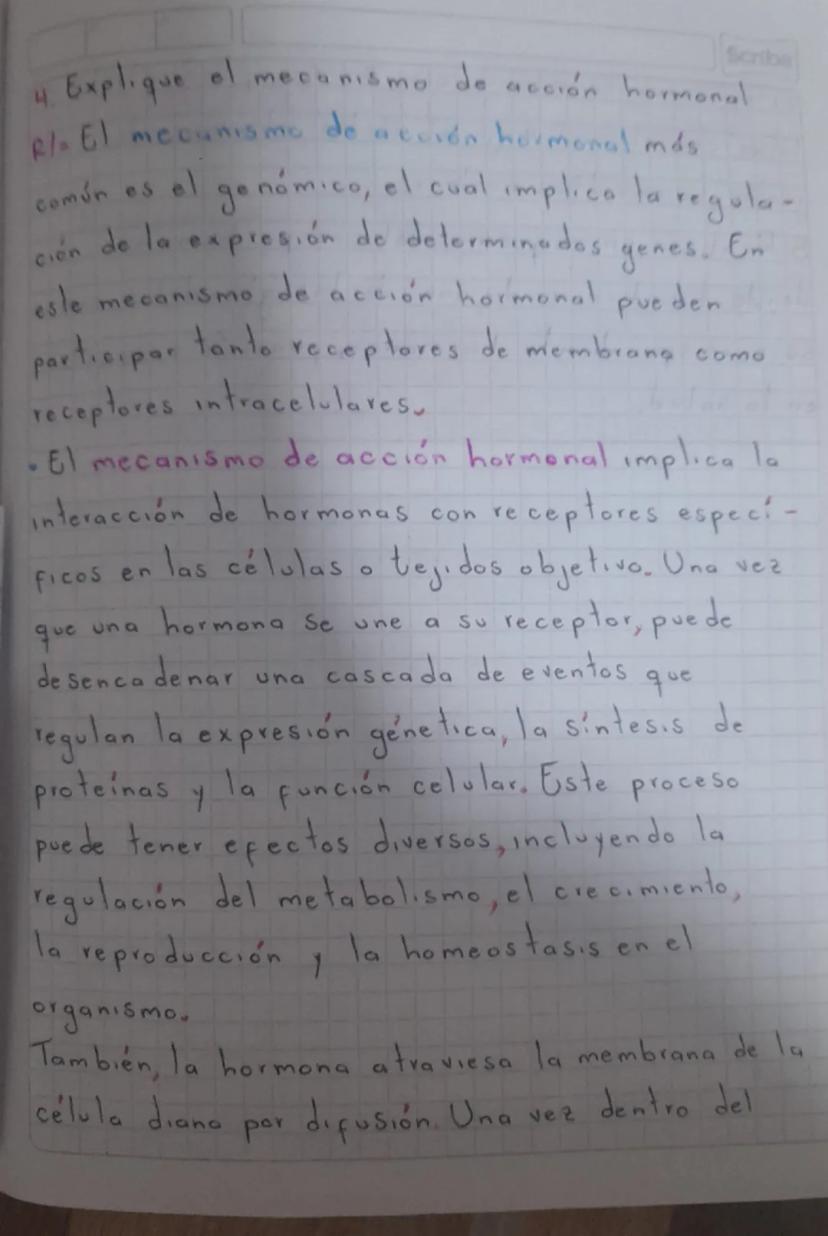 Scribe
4. Explique el mecanismo de acción hormonal
R/= El mecanismo de acción hormonal más
común es el genómico, el cual implica la regula-
ción de la expresión de determinados genes. En
este mecanismo de acción hormonal pueden
participar tanto receptores de membrana como
receptores intracelulares.
• El mecanismo de acción hormonal implica la
interacción de hormonas con receptores especí-
ficos en las células o tejidos objetivo. Una vez
que una hormona se une a su receptor, puede
desencadenar una cascada de eventos que
regulan la expresión génetica, la síntesis de
proteínas y la función celular. Este proceso
puede tener efectos diversos, incluyendo la
regulación del metabolismo, el crecimiento,
la reproducción y la homeostasis en el
organismo.
También, la hormona atraviesa la membrana de la
célula diana por difusión. Una vez dentro del